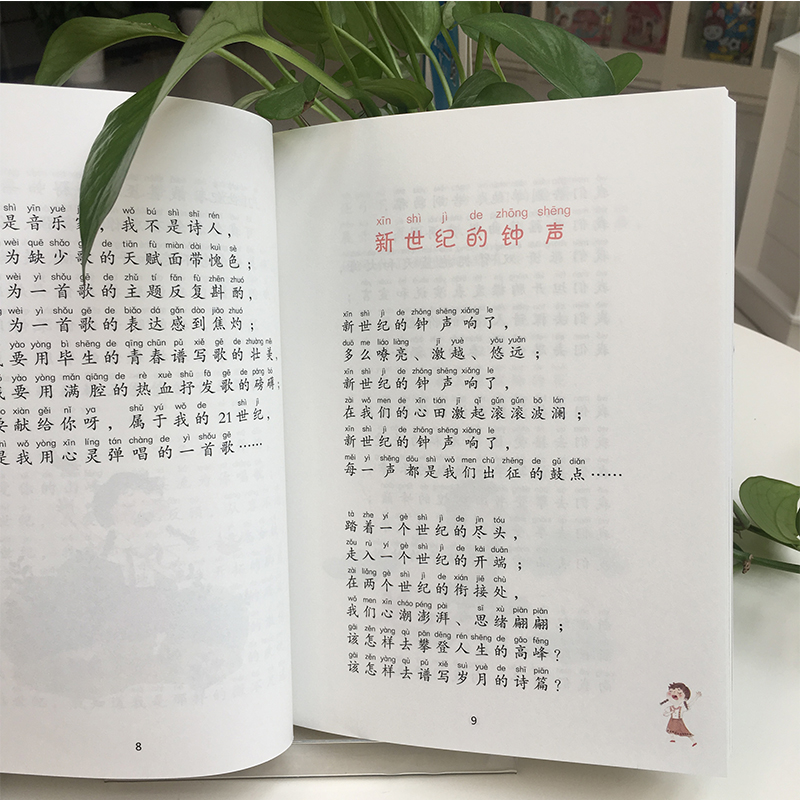 shì yīn yuè wǒ bú shì shī rén
是音乐家，我不是诗人，
wèi quē shǎo gē de tiān fù miàn dài kuì sè
为缺少歌的天赋面带愧色；
wèi yì shǒu gē de zhǔ tí fǎn fù zhēn zhuó
为一首歌的主题反复斟酌，
wèi yì shǒu gē de biǎo dá gǎn dào jiāo zhuó
为一首歌的表达感到焦灼；
yào yòng bì shēng de qīng chūn pǔ xiě gē de zhuàng měi
要用毕生的青春谱写歌的壮美，
yào yòng mǎn qiāng de rè xuè shū fā gē de páng bó
要用满腔的热血抒发歌的磅礴；
yào xiàn gěi nǐ ya shǔ yú wǒ de shì jì
要献给你呀，属于我的21世纪，
shì wǒ yòng xīn líng tán chàng de yì shǒu gē
是我用心灵弹唱的一首歌……
8
xīn shì jì de zhōng shēng
新世纪的钟声
xīn shì jì de zhōng shēng xiǎng le
新世纪的钟声响了，
duō me liáo liàng jī yuè yōu yuǎn
多么嘹亮、激越、悠远；
xīn shì jì de zhōng shēng xiǎng le
新世纪的钟声响了，
zài wǒ men de xīn tián jī qǐ gǔn gǔn bō lán
在我们的心田激起滚滚波澜；
xīn shì jì de zhōng shēng xiǎng le
新世纪的钟声响了，
měi yì shēng dōu shì wǒ men chū zhēng de gǔ diǎn
每一声都是我们出征的鼓点……
tà zhe yí gè shì jì de jìn tóu
踏着一个世纪的尽头，
zǒu rù yí gè shì jì de kāi duān
走入一个世纪的开端；
zài liǎng gè shì jì de xián jiē chù
在两个世纪的衔接处，
wǒ men xīn cháo péng pài sī xù piān piān
我们心潮澎湃、思绪翩翩；
gāi zěn yàng qù pān dēng rén shēng de gāo fēng
该怎样去攀登人生的高峰？
gāi zěn yàng qù pǔ xiě suì yuè de shī piān
该怎样去谱写岁月的诗篇？
9